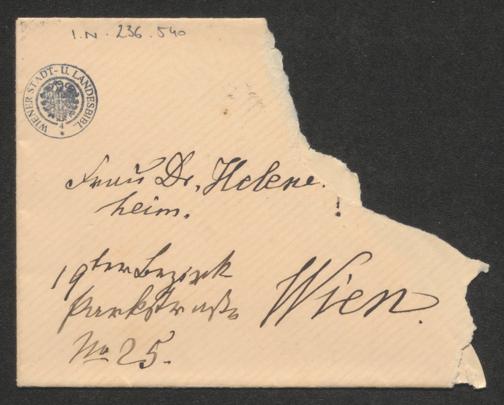 I.N. 236.540
WIENER STADT- U. LANDESBIBL.
Frau Dr. Helene
heim.
!
19ter Bezirk
Parkstraße
Wien.
No 25.